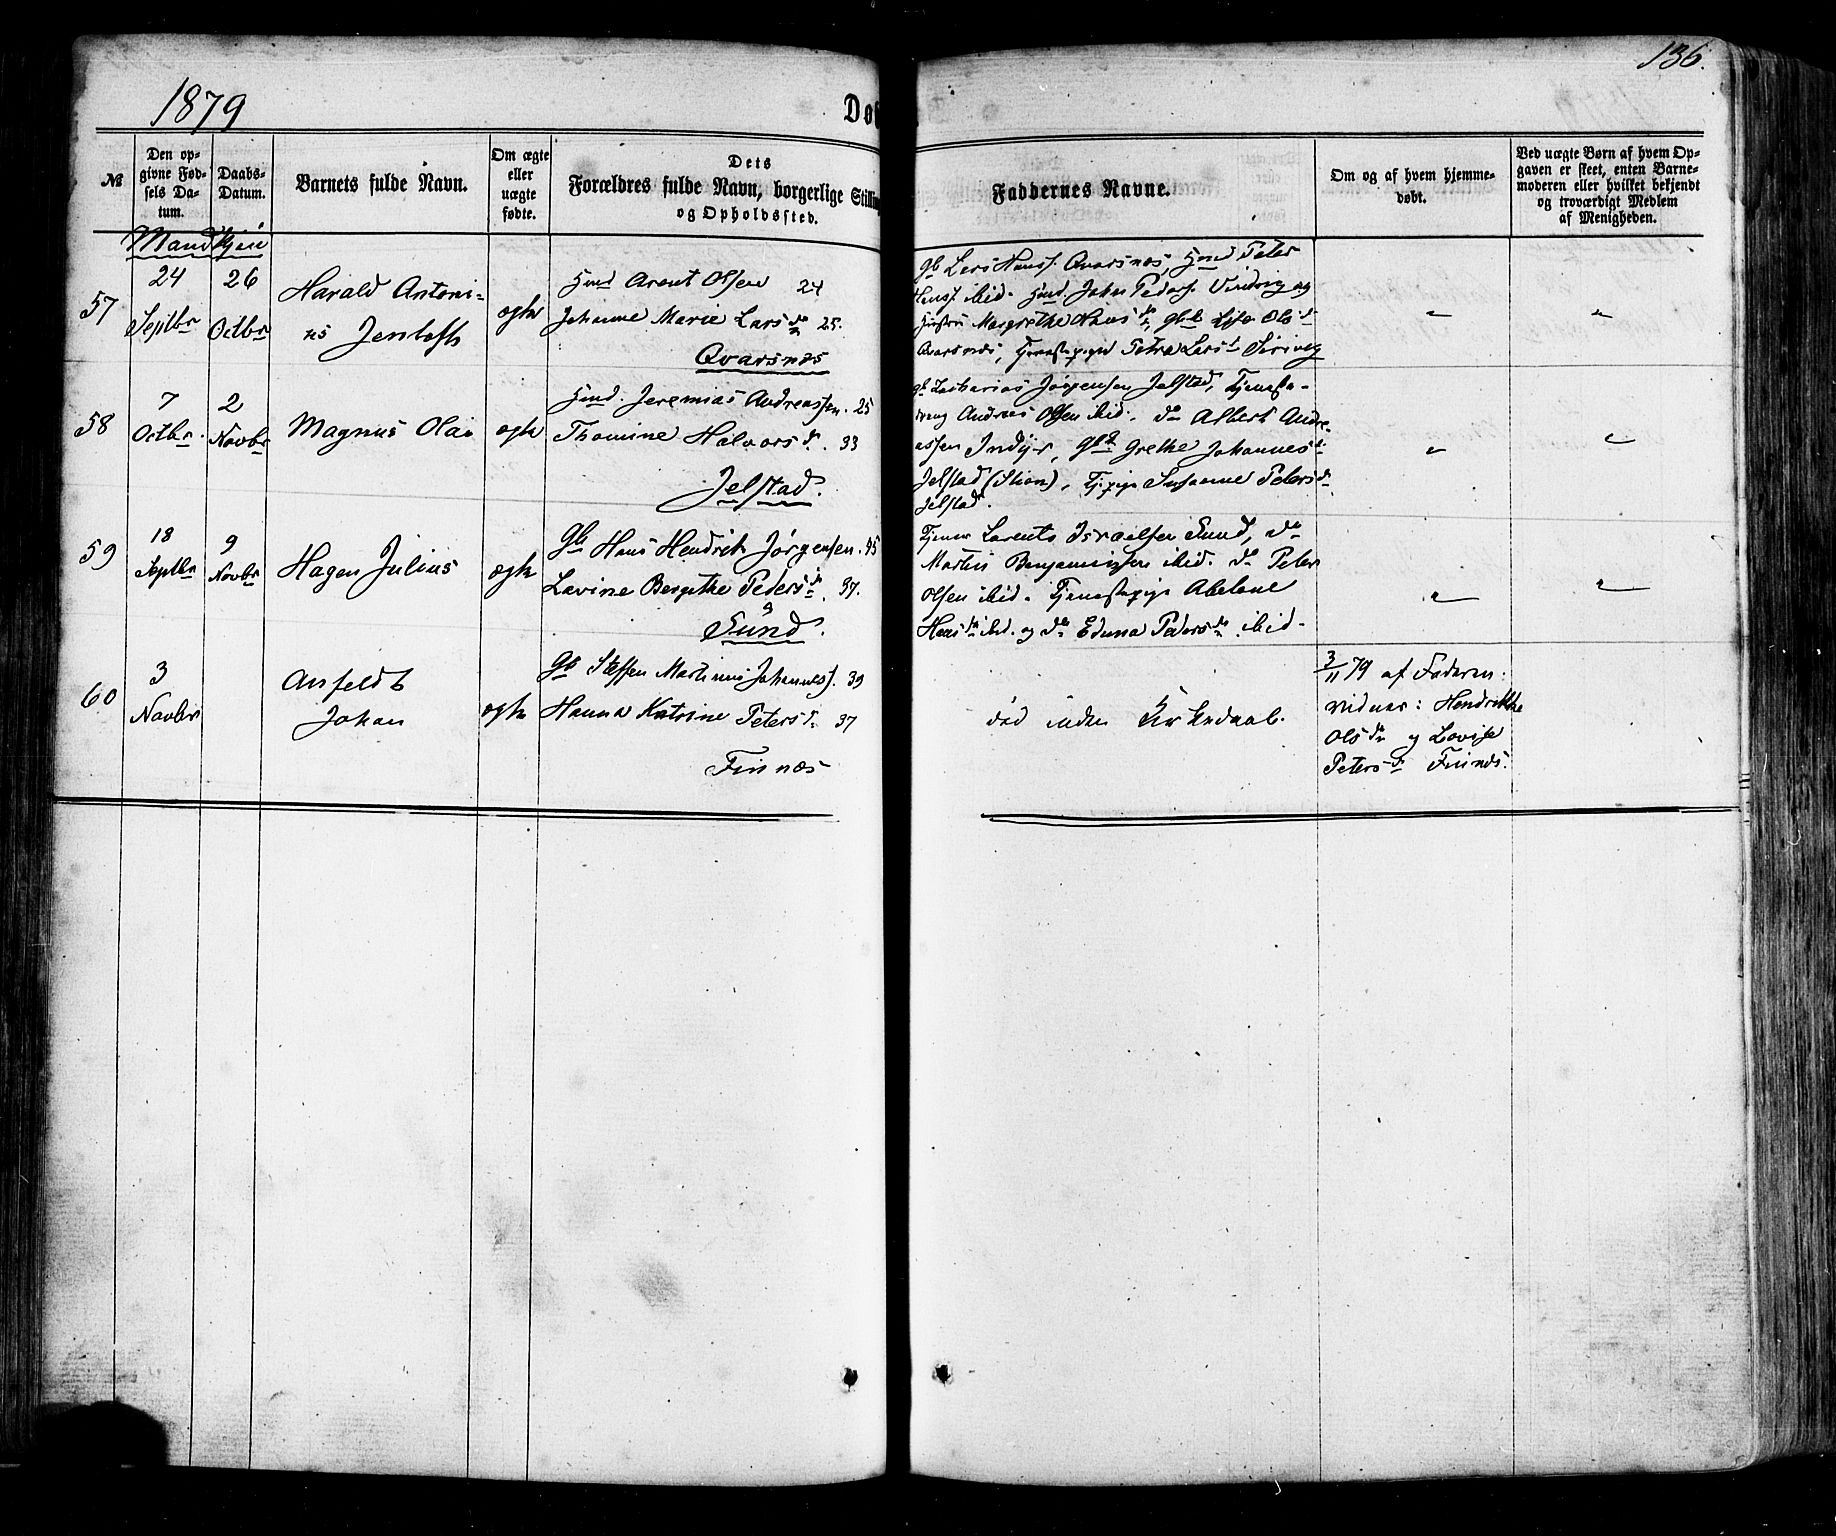 1879
136.
Døb
№
Den op-
givne Fød-
sels Da-
tum.
Daabs-
Datum.
Barnets fulde Navn.
Om ægte
eller
uægte
fødte.
Dets
Forældres fulde Navn, borgerlige Still
og Opholdssted.
Faddernes Navne.
Om og af hvem hjemme-
døbt.
Ved uægte Børn af hvem Op-
gaven er skeet, enten Barne-
moderen eller hvilket bekjendt
og troværdigt Medlem
af Menigheden.
Mandkjøn
57
24
Septbr
26
Octbr
Harald Antoni-
us Jentoft
ægte
Hmd Arent Olsen 24
Johanne Marie Larsdr 25.
Qvarsnæs
Gb Lars Hanss. Qvarsnæs, Hmd Peter
Hanss ibid. Hmd Johan Peders. og
Margrethe Hansdr, Olsdr
Qvarsnæs, Tjenestepige Petra Larsd
"
"
58
7
Octbr.
2
Novbr
Magnus Olai
ægte
Hmd. Jeremias Andreassen. 25
Thomine Halvorsdr. 33
Jelstad.
gb Zacharias Jørgensen Jelstad, Tjeneste-
dreng Andreas Olsen ibid. do Albert Andre-
assen Indyr, Grethe Johannesd
Jelstad (Stien), Tj.pige Susanne Petersdr
Jelstad.
"
"
59
18
Septbr
9
Novbr
Hagen Julius
ægte
Gb Hans Hendrik Jørgensen. 45
Lavine Bergithe Pedersdr. 37.
Sund.
Tjener Lorents Israelsen Sund, do
Martin Benjaminsen ibid. do Peter
Olsen ibid. Tjenestepige Abelone
Hansdr ibid. og do Edvna Pedersdr ibid.
"
"
60
3
Novbr
Anfeldt
Johan
ægte
Gb Steffen Martinus Johanness. 39
Hanna Katrine Petersdr 37
Finnæs
død inden Kirkedaab.
3/11 79 af Faderen:
vidner: Hendrikke
Olsdr og Lovise
Petersdr Finnæs.